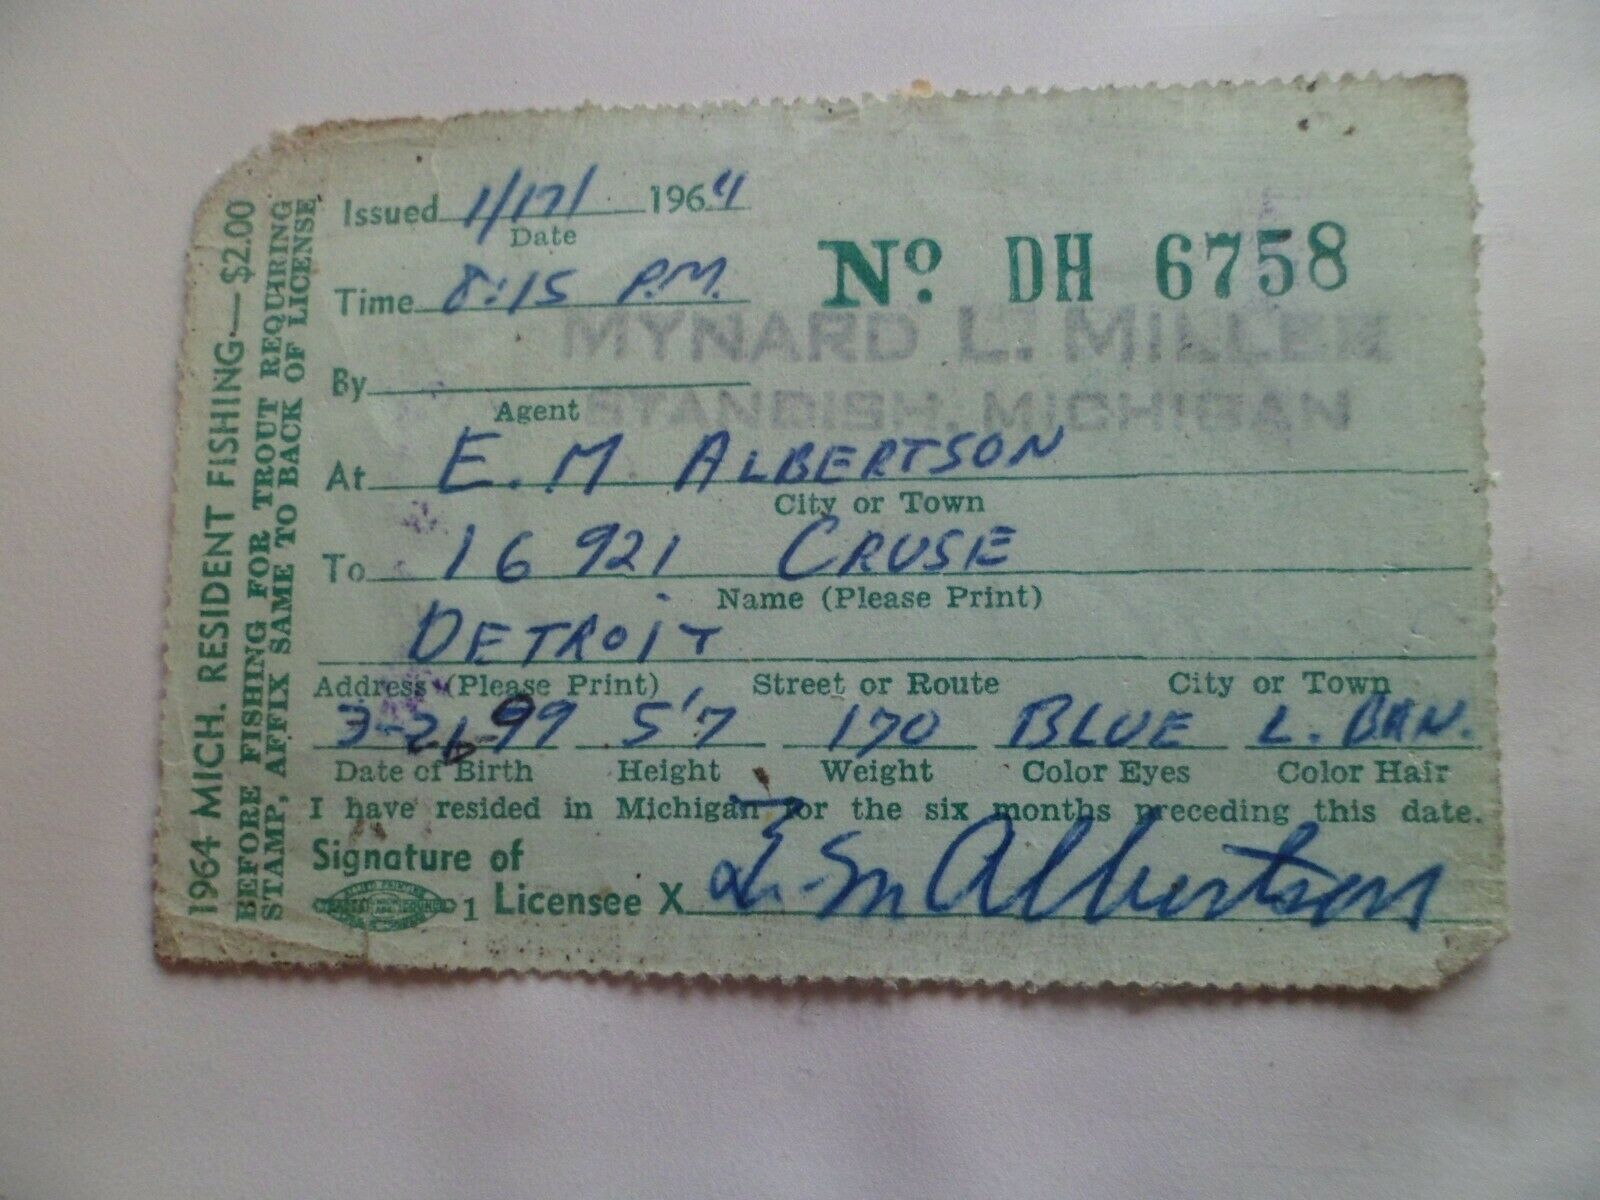 1964 MICH. RESIDENT FISHING—$2.00
BEFORE FISHING FOR TROUT REQUIRING
STAMP, AFFIX SAME TO BACK OF LICENSE
Issued 1/17/ 1964
Date
No. DH 6758
Time 8:15 P.M.
MYNARD L. MILLER
By
STANDISH, MICHIGAN
Agent
At E. M ALBERTSON
City or Town
To 16921 CRUSE
Name (Please Print)
DETROIT
Address (Please Print) Street or Route City or Town
3-21-99 5'7 170 BLUE L. BRN.
Date of Birth Height Weight Color Eyes Color Hair
I have resided in Michigan for the six months preceding this date.
Signature of
1 Licensee X E. M Albertson